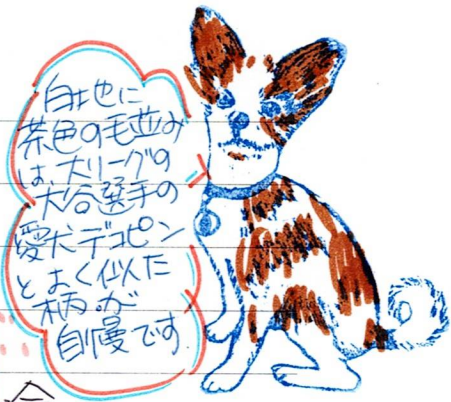 白地に
茶色の毛並み
は、大リーグの
大谷選手の
愛犬デコピン
とよく似た
柄が
自慢です